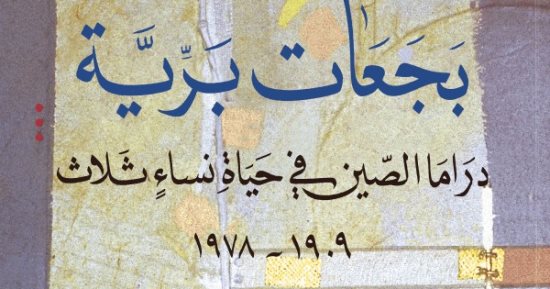 بَجَعَات بَرِّيَّة
درَامَا الصّين في حَيَاةِ نِساءٍ ثَلاث
١٩٠٩ ~ ١٩٧٨